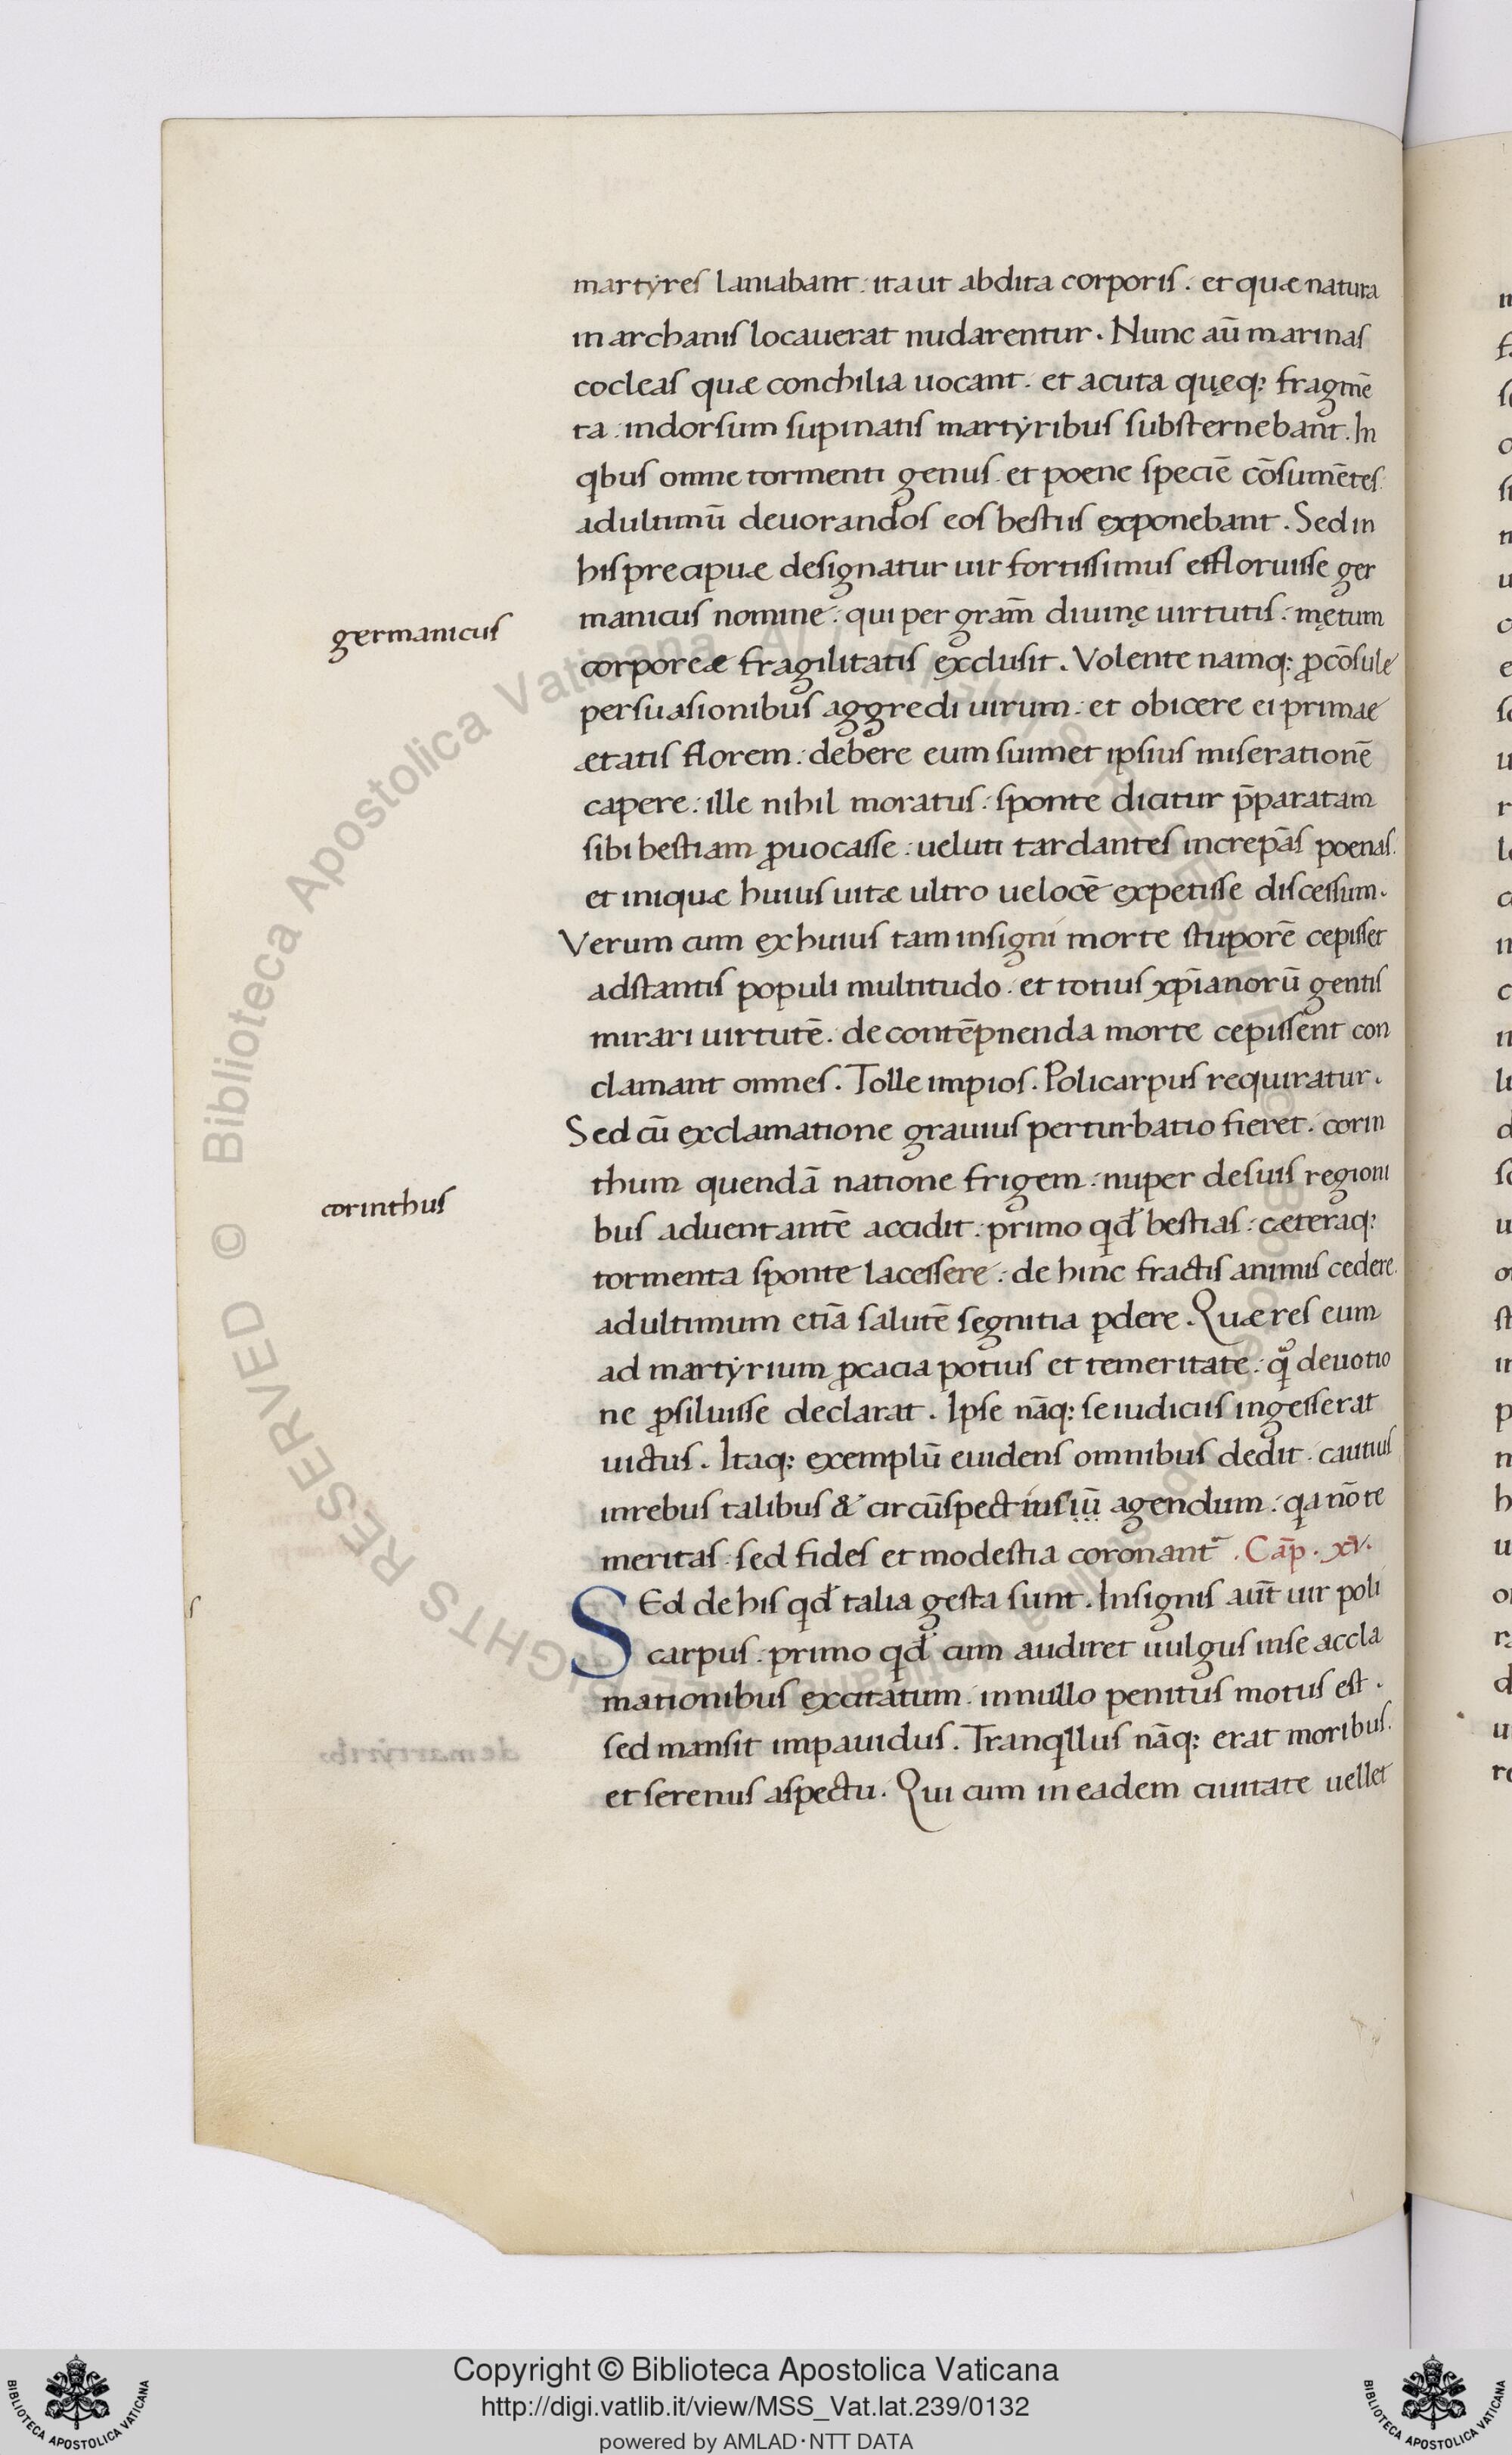 martyres laniabant: ita ut abdita corporis. et quæ natura
in archanis locauerat nudarentur. Nunc aū marinas
cocleas quæ conchilia uocant. et acuta quęq; fragmē
ta. indorsum supinatis martyribus substernebant. In
qbus omne tormenti genus. et poene speciē cōsumētes.
adultimū deuorandos eos bestiis exponebant. Sed in
his precipuæ designatur uir fortissimus effloruisse ger
manicus nomine: qui per gram̄ diuinę uirtutis: mętum
germanicus
corporeæ fragilitatis exclusit. Volente namq; ꝓcōsule
persuasionibus aggredi uirum: et obicere ei primae
ætatis florem: debere eum suimet ipsius miserationē
capere: ille nihil moratus: sponte dicitur p̄paratam
sibi bestiam ꝓuocasse: ueluti tardantes increpās poenas.
et iniquæ huius uitæ ultro uelocē expetisse discessum.
Verum cum ex huius tam insigni morte stuporē cepisset
adstantis populi multitudo. et totius xp̄ianorū gentis
mirari uirtutē. de contēpnenda morte cepissent con
clamant omnes. Tolle impios. Policarpus requiratur.
Sed cū exclamatione grauius perturbatio fieret: corin
thum quendā natione frigem: nuper desuis regioni
corinthus
bus aduentantē accidit: primo qd̄ bestias: cæteraq;
tormenta sponte lacessere: de hinc fractis animis cedere.
adultimum etiā salutē segnitia ꝑdere. Quæ res eum
ad martyrium ꝓcacia potius et temeritate: qͣ̄ deuotio
ne ꝓsiluisse declarat. Ipse nāq; se iudiciis ingesserat
uictus. Itaq; exemplū euidens omnibus dedit. cautius
inrebus talibus & circūspectius iū agendum: qa nō te
meritas: sed fides et modestia coronant᷑. Cap̄. xv.
SEd de his qd̄ talia gesta sunt. Insignis aūt uir poli
carpus: primo qd̄ cum audiret uulgus inse accla
mationibus excitatum. innullo penitus motus est.
sed mansit impauidus. Tranqllus nāq; erat moribus.
et serenus aspectu. Qui cum in eadem ciuitate uellet
© Biblioteca Apostolica Vaticana ALL RIGHTS RESERVED
Copyright © Biblioteca Apostolica Vaticana
http://digi.vatlib.it/view/MSS_Vat.lat.239/0132
powered by AMLAD·NTT DATA
BIBLIOTECA APOSTOLICA VATICANA
BIBLIOTECA APOSTOLICA VATICANA